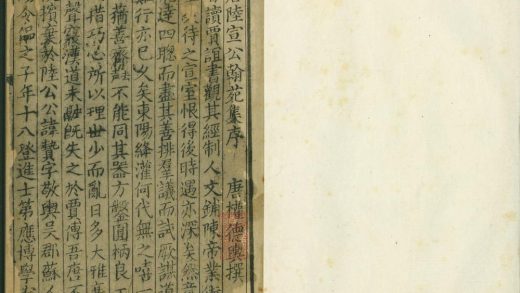 陸宣公翰苑集序 唐權德輿撰
讀賈誼書觀其經制人文鋪陳帝業術
待之宣室恨得後時遇亦深矣然竟
達四聰而盡其善排羣議而試厥謀道
行亦已久矣東陽絳灌何代無之嘻一
蕕善齊不能同其器方鑿圓枘良工
措巧心所以理世少而亂日多大雅衰
聲寢漢道未融既失之於賈傅吾唐不
擯棄於陸公公諱贄字敬輿吳郡蘇人
令偘之子年十八登進士第應博學宏